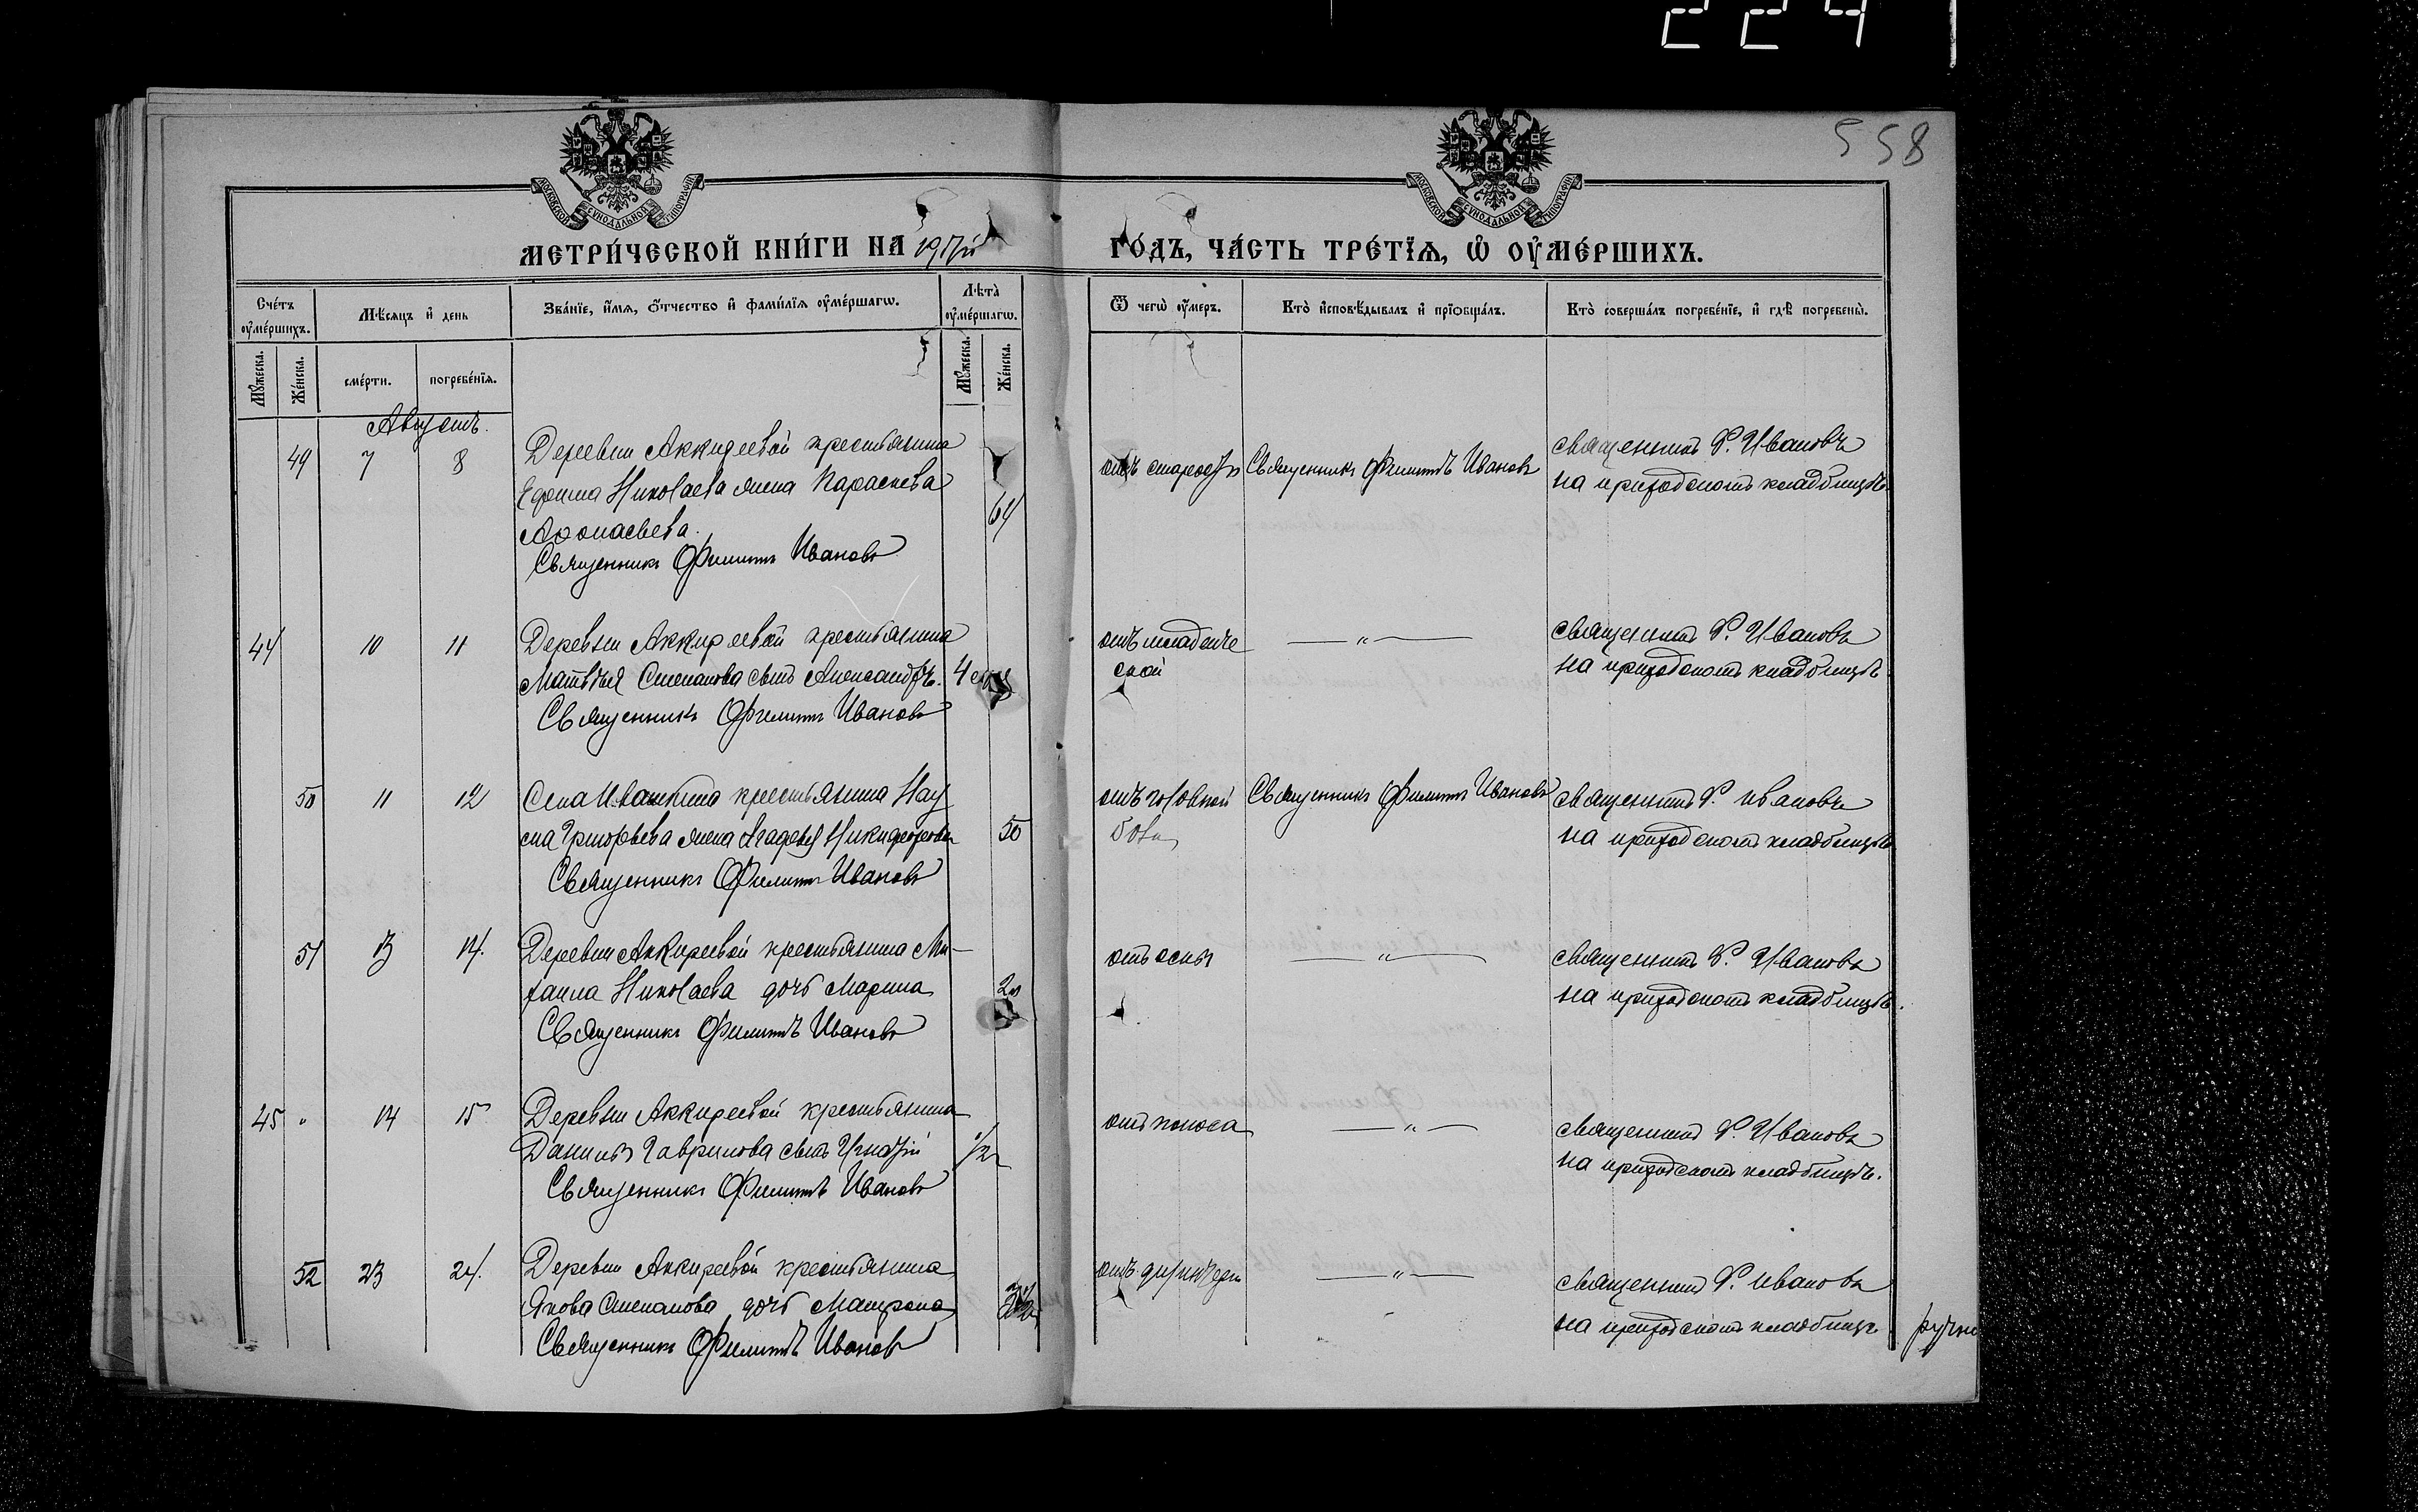 224
558
МОСКОВСКОЙ СѴНОДАЛЬНОЙ ТИПОГРАФІИ
МОСКОВСКОЙ СѴНОДАЛЬНОЙ ТИПОГРАФІИ
МЕТРИ́ЧЕСКОЙ КНИ́ГИ НА 1917й ГО́ДЪ, ЧА́СТЬ ТРЕ́ТЇѦ, Ѽ ОУ҆МЕ́РШИХЪ.
Сче́тъ оу҆ме́ршихъ.
Мѣ́сяцъ и҆ день
Зва́нїе, и҆́мя, о҆́тчество и҆ фами́лїя оу҆ме́ршагѡ.
Лѣта̀ оу҆ме́ршагѡ.
Ѿ чегѡ̀ оу҆́меръ.
Кто̀ и҆сповѣ́дывалъ и҆ прїѻбща́лъ.
Кто̀ соверша́лъ погребе́нїе, и҆ гдѣ̀ погребены̀.
Мꙋ́жеска.
Же́нска.
сме́рти.
погребе́нїя.
Мꙋ́жеска.
Же́нска.
Августъ.
49 7 8 Деревни Аккиреевой крестьянина
Николаева жена Параскева
Афонасьева. 64
Священникъ Филиппъ Ивановъ
отъ старости Священникъ Филиппъ Ивановъ священникъ Ф. Ивановъ
на приходскомъ кладбищѣ
44 10 11 Деревни Аккиреевой крестьянина
Матвѣя Степанова сынъ Александръ. 4
Священникъ Филиппъ Ивановъ
отъ младенче
ской —„— священникъ Ф. Ивановъ
на приходскомъ кладбищѣ
50 11 12 Села Ивашкина крестьянина Нау
ма Григорьева жена Агафья Никифорова 50
Священникъ Филиппъ Ивановъ
отъ головной
боли Священникъ Филиппъ Ивановъ священникъ Ф. Ивановъ
на приходскомъ кладбищѣ
51 13 14. Деревни Аккиреевой крестьянина Ми-
хаила Николаева дочь Марина
Священникъ Филиппъ Ивановъ
отъ оспы —„— священникъ Ф. Ивановъ
на приходскомъ кладбищѣ.
45 „ 14 15 Деревни Аккиреевой крестьянина
Данилы Гаврилова сынъ Игнатій 1/2
Священникъ Филиппъ Ивановъ
отъ поноса —„— священникъ Ф. Ивановъ
на приходскомъ кладбищѣ.
52 23 24. Деревни Аккиреевой крестьянина
Якова Степанова дочь Матрона
Священникъ Филиппъ Ивановъ
отъ дизинтеріи —„— священникъ Ф. Ивановъ
на приходскомъ кладбищѣ